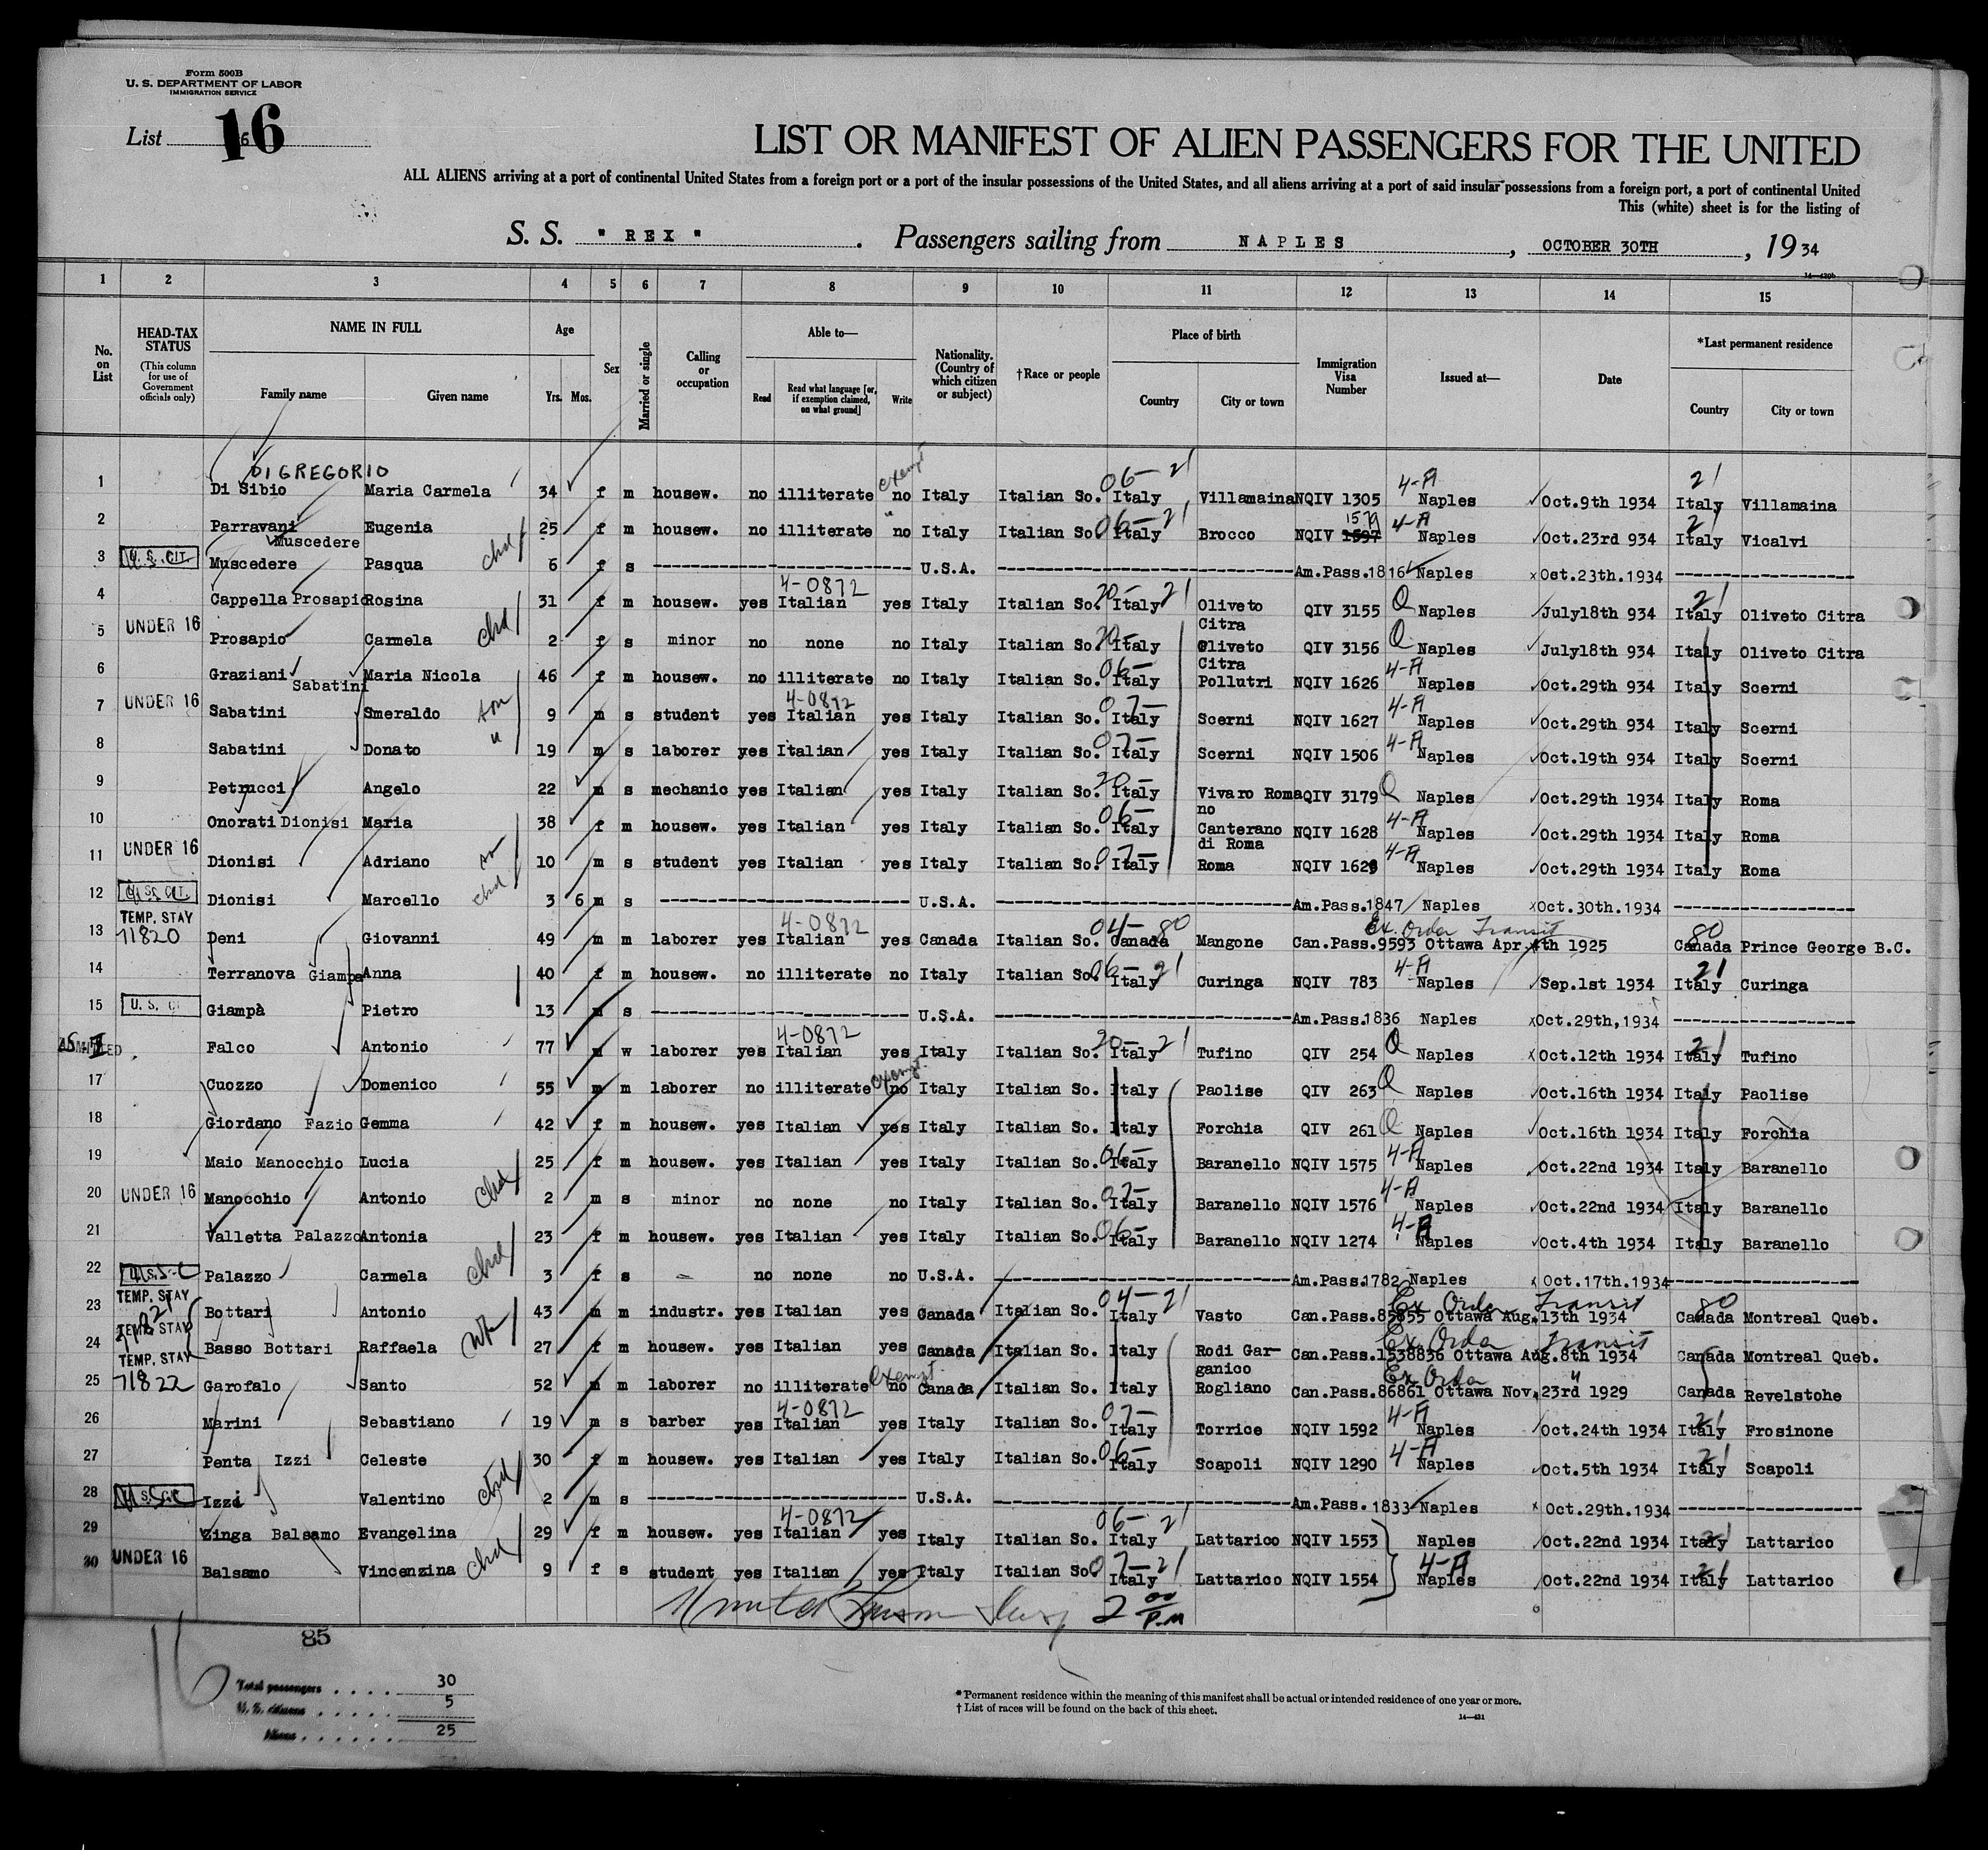 Form 500B
U. S. DEPARTMENT OF LABOR
IMMIGRATION SERVICE
List 16
LIST OR MANIFEST OF ALIEN PASSENGERS FOR THE UNITED
ALL ALIENS arriving at a port of continental United States from a foreign port or a port of the insular possessions of the United States, and all aliens arriving at a port of said insular possessions from a foreign port, a port of continental United
This (white) sheet is for the listing of
S. S. "REX". Passengers sailing from NAPLES, OCTOBER 30TH, 1934
14—430b
1 2 3 4 5 6 7 8 9 10 11 12 13 14 15
No. on List
HEAD-TAX STATUS (This column for use of Government officials only)
NAME IN FULL Family name Given name
Age Yrs. Mos.
Sex
Married or single
Calling or occupation
Able to— Read Read what language [or, if exemption claimed, on what ground] Write
Nationality. (Country of which citizen or subject)
†Race or people
Place of birth Country City or town
Immigration Visa Number
Issued at—
Date
*Last permanent residence Country City or town
DI GREGORIO exempt 06- 21 4-A 21
1 Di Sibio Maria Carmela 34 f m housew. no illiterate no Italy Italian So. Italy Villamaina NQIV 1305 Naples Oct.9th 1934 Italy Villamaina
2 Parravani Muscedere Eugenia 25 f m housew. no illiterate " no Italy Italian So. 06-21 Italy Brocco NQIV 1597 1579 4-A Naples Oct.23rd 934 21 Italy Vicalvi
3 U. S. CIT. Muscedere Pasqua chd 6 f s U.S.A. Am.Pass.1816 Naples Oct.23th.1934
4 Cappella Prosapio Rosina 31 f m housew. yes 4-0872 Italian yes Italy Italian So. 20-21 Italy Oliveto Citra QIV 3155 Q Naples July18th 934 21 Italy Oliveto Citra
5 UNDER 16 Prosapio Carmela chd 2 f s minor no none no Italy Italian So. 20- Italy Oliveto Citra QIV 3156 Q Naples July18th 934 Italy Oliveto Citra
6 Graziani Sabatini Maria Nicola 46 f m housew. no illiterate no Italy Italian So. 06- Italy Pollutri NQIV 1626 4-A Naples Oct.29th 934 Italy Scerni
7 UNDER 16 Sabatini Smeraldo son 9 m s student yes 4-0872 Italian yes Italy Italian So. 07- Italy Scerni NQIV 1627 4-A Naples Oct.29th 934 Italy Scerni
8 Sabatini Donato " 19 m s laborer yes Italian yes Italy Italian So. 07- Italy Scerni NQIV 1506 4-A Naples Oct.19th 934 Italy Scerni
9 Petrucci Angelo 22 m s mechanic yes Italian yes Italy Italian So. 20- Italy Vivaro Romano QIV 3179 Q Naples Oct.29th 1934 Italy Roma
10 Onorati Dionisi Maria 38 f m housew. yes Italian yes Italy Italian So. 06- Italy Canterano di Roma NQIV 1628 4-A Naples Oct.29th 1934 Italy Roma
11 UNDER 16 Dionisi Adriano 10 m s student yes Italian yes Italy Italian So. 07- Italy Roma NQIV 1629 4-A Naples Oct.29th 1934 Italy Roma
12 U. S. CIT. Dionisi Marcello chd 3 6 m s U.S.A. Am.Pass.1847 Naples Oct.30th.1934
13 TEMP. STAY 71820 Deni Giovanni 49 m m laborer yes 4-0872 Italian yes Canada Italian So. 04-80 Canada Mangone Can.Pass.9593 Ottawa Apr.4th 1925 Ex. Order Transit 80 Canada Prince George B.C.
14 Terranova Giampa Anna 40 f m housew. no illiterate no Italy Italian So. 06-21 Italy Curinga NQIV 783 4-A Naples Sep.1st 1934 21 Italy Curinga
15 U. S. CI Giampà Pietro 13 m s U.S.A. Am.Pass.1836 Naples Oct.29th,1934
ADMITTED Falco Antonio 77 m w laborer yes 4-0872 Italian yes Italy Italian So. 20-21 Italy Tufino QIV 254 Q Naples Oct.12th 1934 21 Italy Tufino
17 Cuozzo Domenico 55 m m laborer no illiterate exempt no Italy Italian So. Italy Paolise QIV 263 Q Naples Oct.16th 1934 Italy Paolise
18 Giordano Fazio Gemma 42 f m housew. yes Italian yes Italy Italian So. Italy Forchia QIV 261 Q Naples Oct.16th 1934 Italy Forchia
19 Maio Manocchio Lucia 25 f m housew. yes Italian yes Italy Italian So. 06- Italy Baranello NQIV 1575 4-A Naples Oct.22nd 1934 Italy Baranello
20 UNDER 16 Manocchio Antonio chd 2 m s minor no none no Italy Italian So. 07- Italy Baranello NQIV 1576 4-A Naples Oct.22nd 1934 Italy Baranello
21 Valletta Palazzo Antonia 23 f m housew. yes Italian yes Italy Italian So. 06- Italy Baranello NQIV 1274 4-A Naples Oct.4th 1934 Italy Baranello
22 Palazzo Carmela chd 3 f s - no none no U.S.A. Am.Pass.1782 Naples Oct.17th.1934
23 TEMP. STAY 71821 Bottari Antonio 43 m m industr. yes Italian yes Canada Italian So. 04-21 Italy Vasto Can.Pass.85855 Ottawa Aug.13th 1934 Ex Order Transit 80 Canada Montreal Queb.
24 TEMP. STAY Basso Bottari Raffaela wife 27 f m housew. yes Italian yes Canada Italian So. Italy Rodi Gar-ganico Can.Pass.1538836 Ottawa Aug.8th 1934 Ex. Order Transit Canada Montreal Queb.
25 TEMP. STAY 71822 Garofalo Santo 52 m m laborer no illiterate exempt no Canada Italian So. Italy Rogliano Can.Pass.86861 Ottawa Nov.23rd 1929 Ex Order " Canada Revelstohe
26 Marini Sebastiano 19 m s barber yes 4-0872 Italian yes Italy Italian So. 07- Italy Torrice NQIV 1592 4-A Naples Oct.24th 1934 21 Italy Frosinone
27 Penta Izzi Celeste 30 f m housew. yes Italian yes Italy Italian So. 06- Italy Scapoli NQIV 1290 4-A Naples Oct.5th 1934 21 Italy Scapoli
28 Izzi Valentino chd 2 m s U.S.A. Am.Pass. 1833 Naples Oct.29th.1934
29 Zinga Balsamo Evangelina 29 f m housew. yes 4-0872 Italian yes Italy Italian So. 06-21 Italy Lattarico NQIV 1553 Naples Oct.22nd 1934 21 Italy Lattarico
30 UNDER 16 Balsamo Vincenzina chd 9 f s student yes Italian yes Italy Italian So. 07-21 Italy Lattarico NQIV 1554 4-A Naples Oct.22nd 1934 21 Italy Lattarico
2 00 P.M
16
85
Total passengers . . . . 30
U. S. citizens . . . . . 5
Aliens . . . . . . 25
*Permanent residence within the meaning of this manifest shall be actual or intended residence of one year or more.
† List of races will be found on the back of this sheet.
14—431